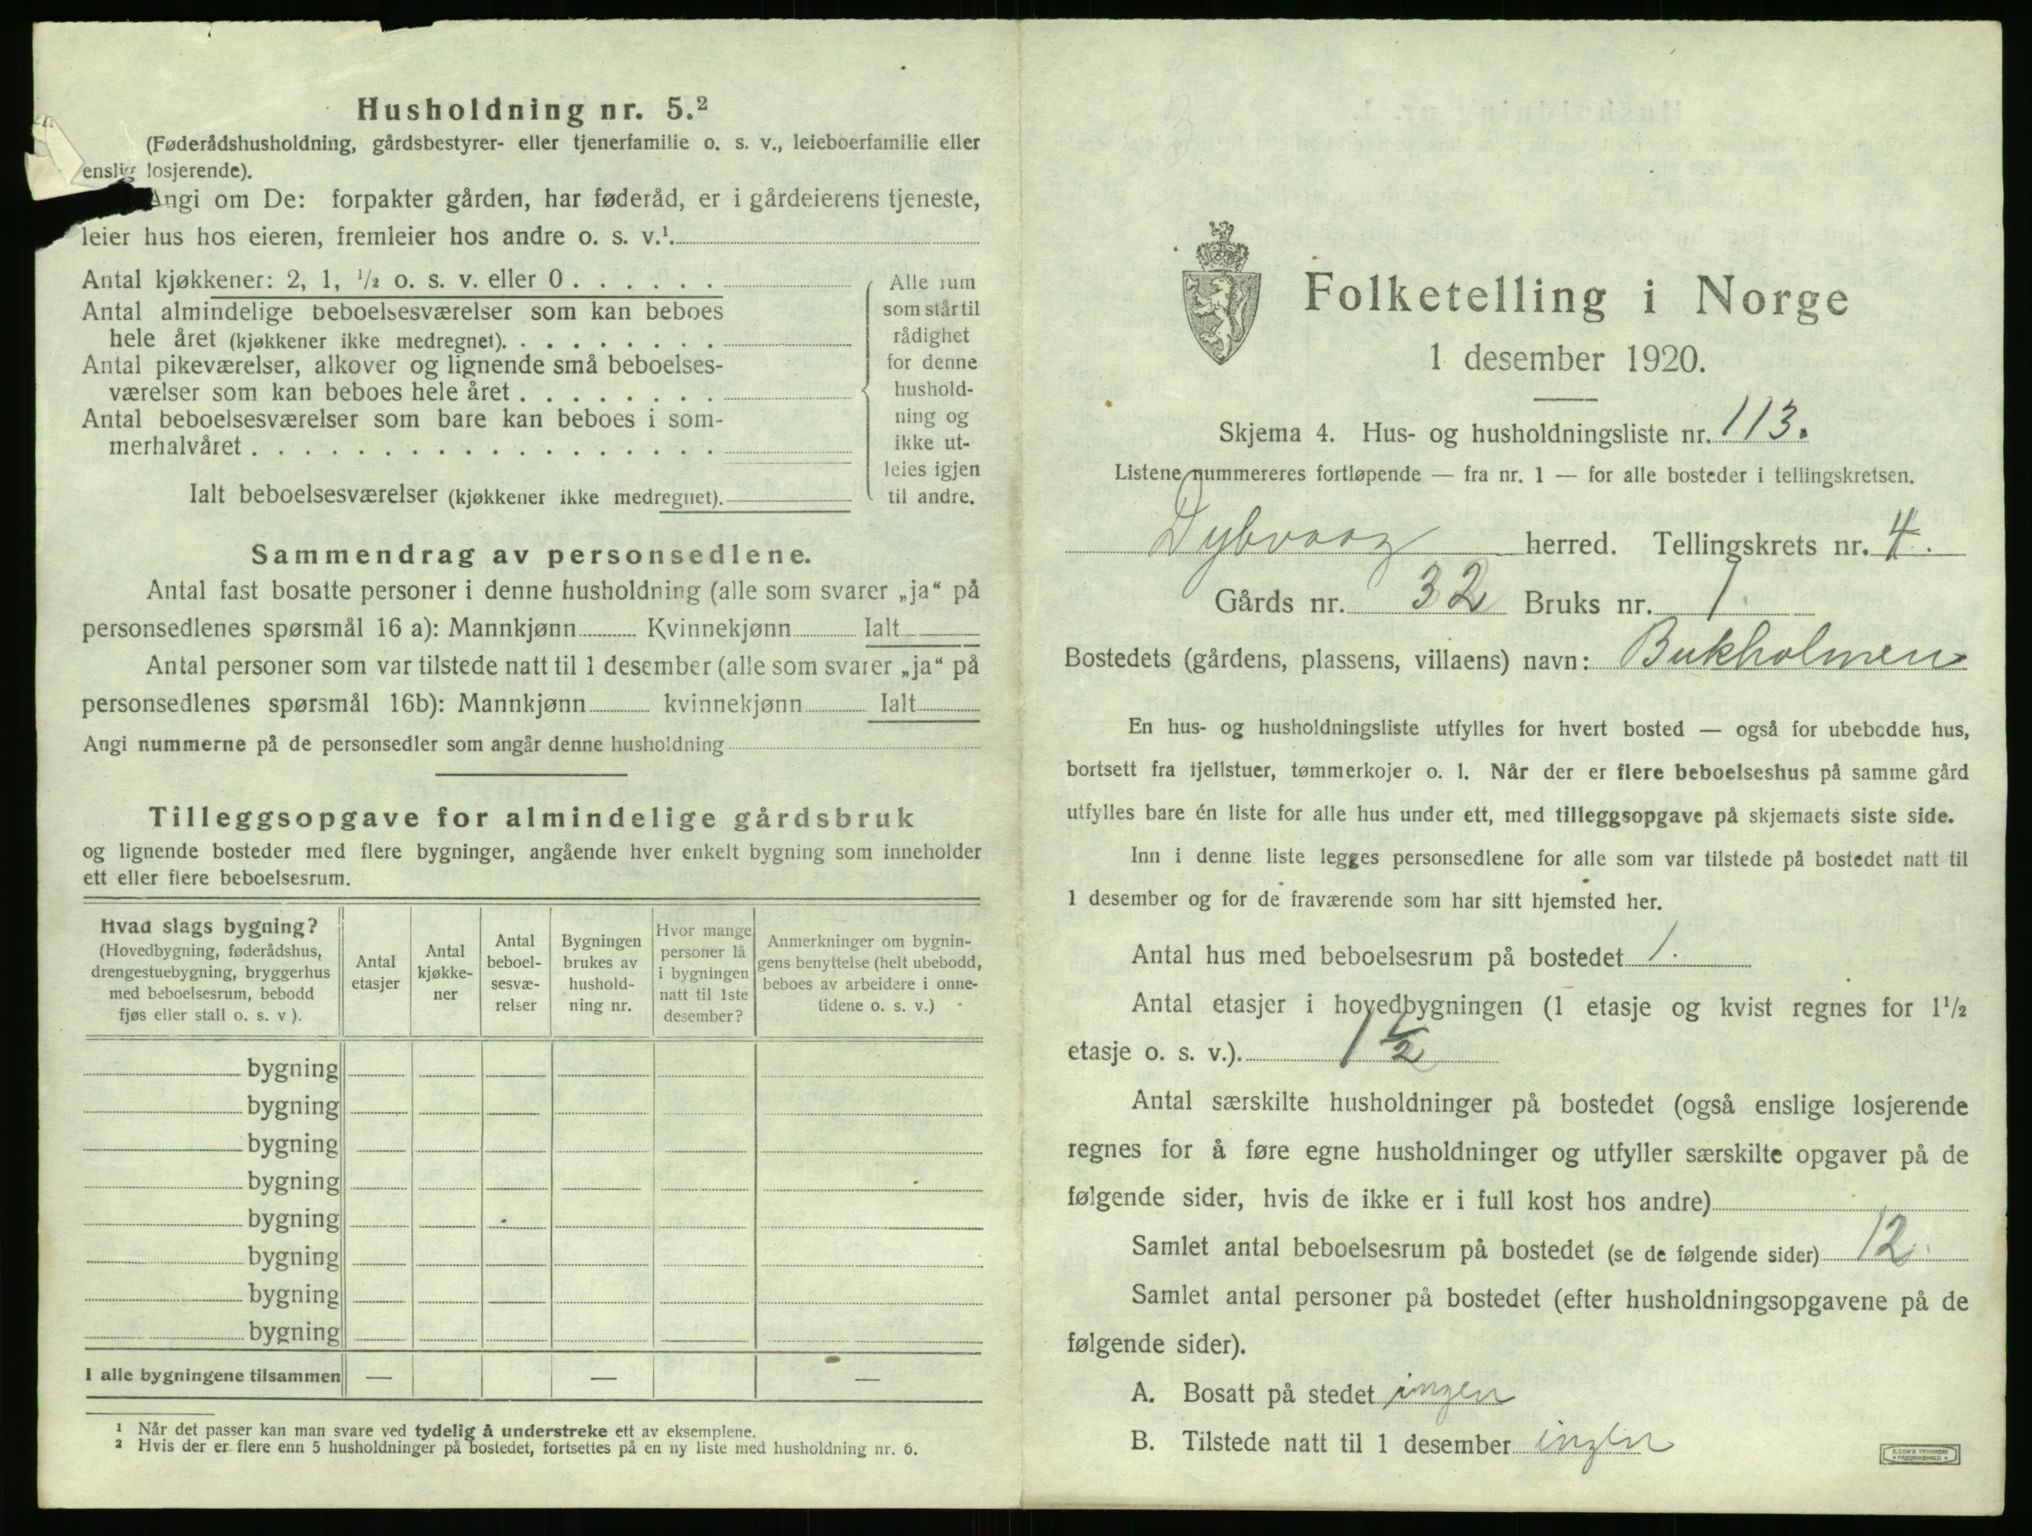 Husholdning nr. 5.²
(Føderådshusholdning, gårdsbestyrer- eller tjenerfamilie o. s. v., leieboerfamilie eller
enslig losjerende).
Angi om De: forpakter gården, har føderåd, er i gårdeierens tjeneste,
leier hus hos eieren, fremleier hos andre o. s. v.¹.
Antal kjøkkener: 2, 1, ½ o. s. v. eller 0 . . . . . .
Antal almindelige beboelsesværelser som kan beboes
hele året (kjøkkener ikke medregnet). . . . . . . . .
Antal pikeværelser, alkover og lignende små beboelses-
værelser som kan beboes hele året . . . . . . . .
Antal beboelsesværelser som bare kan beboes i som-
merhalvåret . . . . . . . . . . . . . . . . . .
Ialt beboelsesværelser (kjøkkener ikke medregnet).
Alle rum
som står til
rådighet
for denne
hushold-
ning og
ikke ut-
leies igjen
til andre.
Sammendrag av personsedlene.
Antal fast bosatte personer i denne husholdning (alle som svarer „ja“ på
personsedlenes spørsmål 16 a): Mannkjønn Kvinnekjønn Ialt
Antal personer som var tilstede natt til 1 desember (alle som svarer „ja“ på
personsedlenes spørsmål 16b): Mannkjønn kvinnekjønn Ialt
Angi nummerne på de personsedler som angår denne husholdning
Tilleggsopgave for almindelige gårdsbruk
og lignende bosteder med flere bygninger, angående hver enkelt bygning som inneholder
ett eller flere beboelsesrum.
Hvad slags bygning?
(Hovedbygning, føderådshus,
drengestuebygning, bryggerhus
med beboelsesrum, bebodd
fjøs eller stall o. s. v ).
Antal
etasjer
Antal
kjøkke-
ner
Antal
beboel-
sesvæ-
relser
Bygningen
brukes av
hushold-
ning nr.
Hvor mange
personer lå
i bygningen
natt til 1ste
desember?
Anmerkninger om bygnin-
gens benyttelse (helt ubebodd,
beboes av arbeidere i onne-
tidene o. s. v.)
bygning
bygning
bygning
bygning
bygning
bygning
bygning
bygning
I alle bygningene tilsammen — — —
¹ Når det passer kan man svare ved tydelig å understreke ett av eksemplene.
² Hvis der er flere enn 5 husholdninger på bostedet, fortsettes på en ny liste med husholdning nr. 6.
Folketelling i Norge
1 desember 1920.
Skjema 4. Hus- og husholdningsliste nr. 113.
Listene nummereres fortløpende — fra nr. 1 — for alle bosteder i tellingskretsen.
Dybvaag herred. Tellingskrets nr. 4.
Gårds nr. 32 Bruks nr. 1.
Bostedets (gårdens, plassens, villaens) navn: Bukholmen
En hus- og husholdningsliste utfylles for hvert bosted — også for ubebodde hus,
bortsett fra fjellstuer, tømmerkojer o. l. Når der er flere beboelseshus på samme gård
utfylles bare én liste for alle hus under ett, med tilleggsopgave på skjemaets siste side.
Inn i denne liste legges personsedlene for alle som var tilstede på bostedet natt til
1 desember og for de fraværende som har sitt hjemsted her.
Antal hus med beboelsesrum på bostedet 1.
Antal etasjer i hovedbygningen (1 etasje og kvist regnes for 1½
etasje o. s. v.). 1 ½
Antal særskilte husholdninger på bostedet (også enslige losjerende
regnes for å føre egne husholdninger og utfyller særskilte opgaver på de
følgende sider, hvis de ikke er i full kost hos andre)
Samlet antal beboelsesrum på bostedet (se de følgende sider) 12.
Samlet antal personer på bostedet (efter husholdningsopgavene på de
følgende sider).
A. Bosatt på stedet ingen
B. Tilstede natt til 1 desember ingen
E. SEM'S TRYKKERI
FREDRIKSHALD